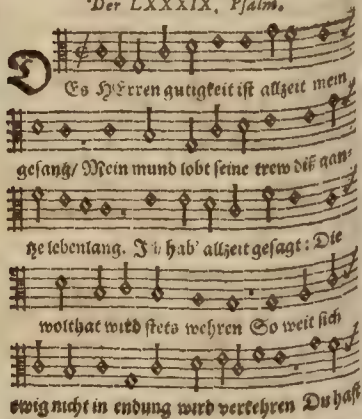 Der LXXXIX. Psalm.
Des HErren gutigkeit ist allzeit mein
gesang/ Mein mund lobt seine trew diß gan-
tze lebenlang. Ich hab' allzeit gesagt: Die
wolthat wird stets wehren So weit sich
ewig nicht in endung wird verkehren Du hast